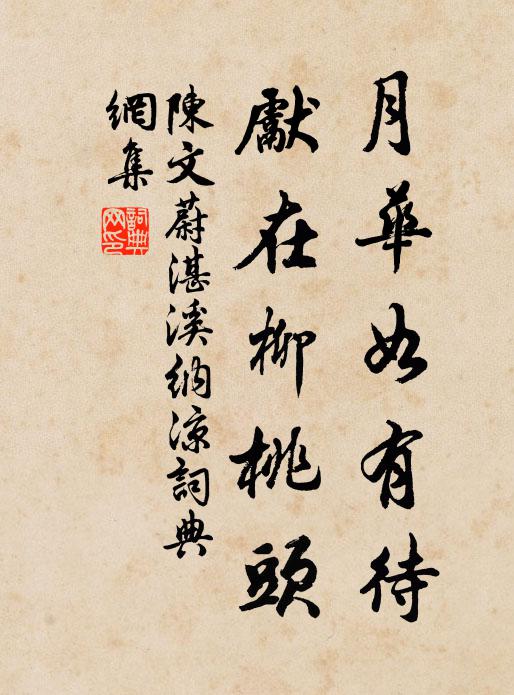 月華如有待
獻在柳桃頭
陳文蔚湛溪納涼詞典
網集
詞典網印